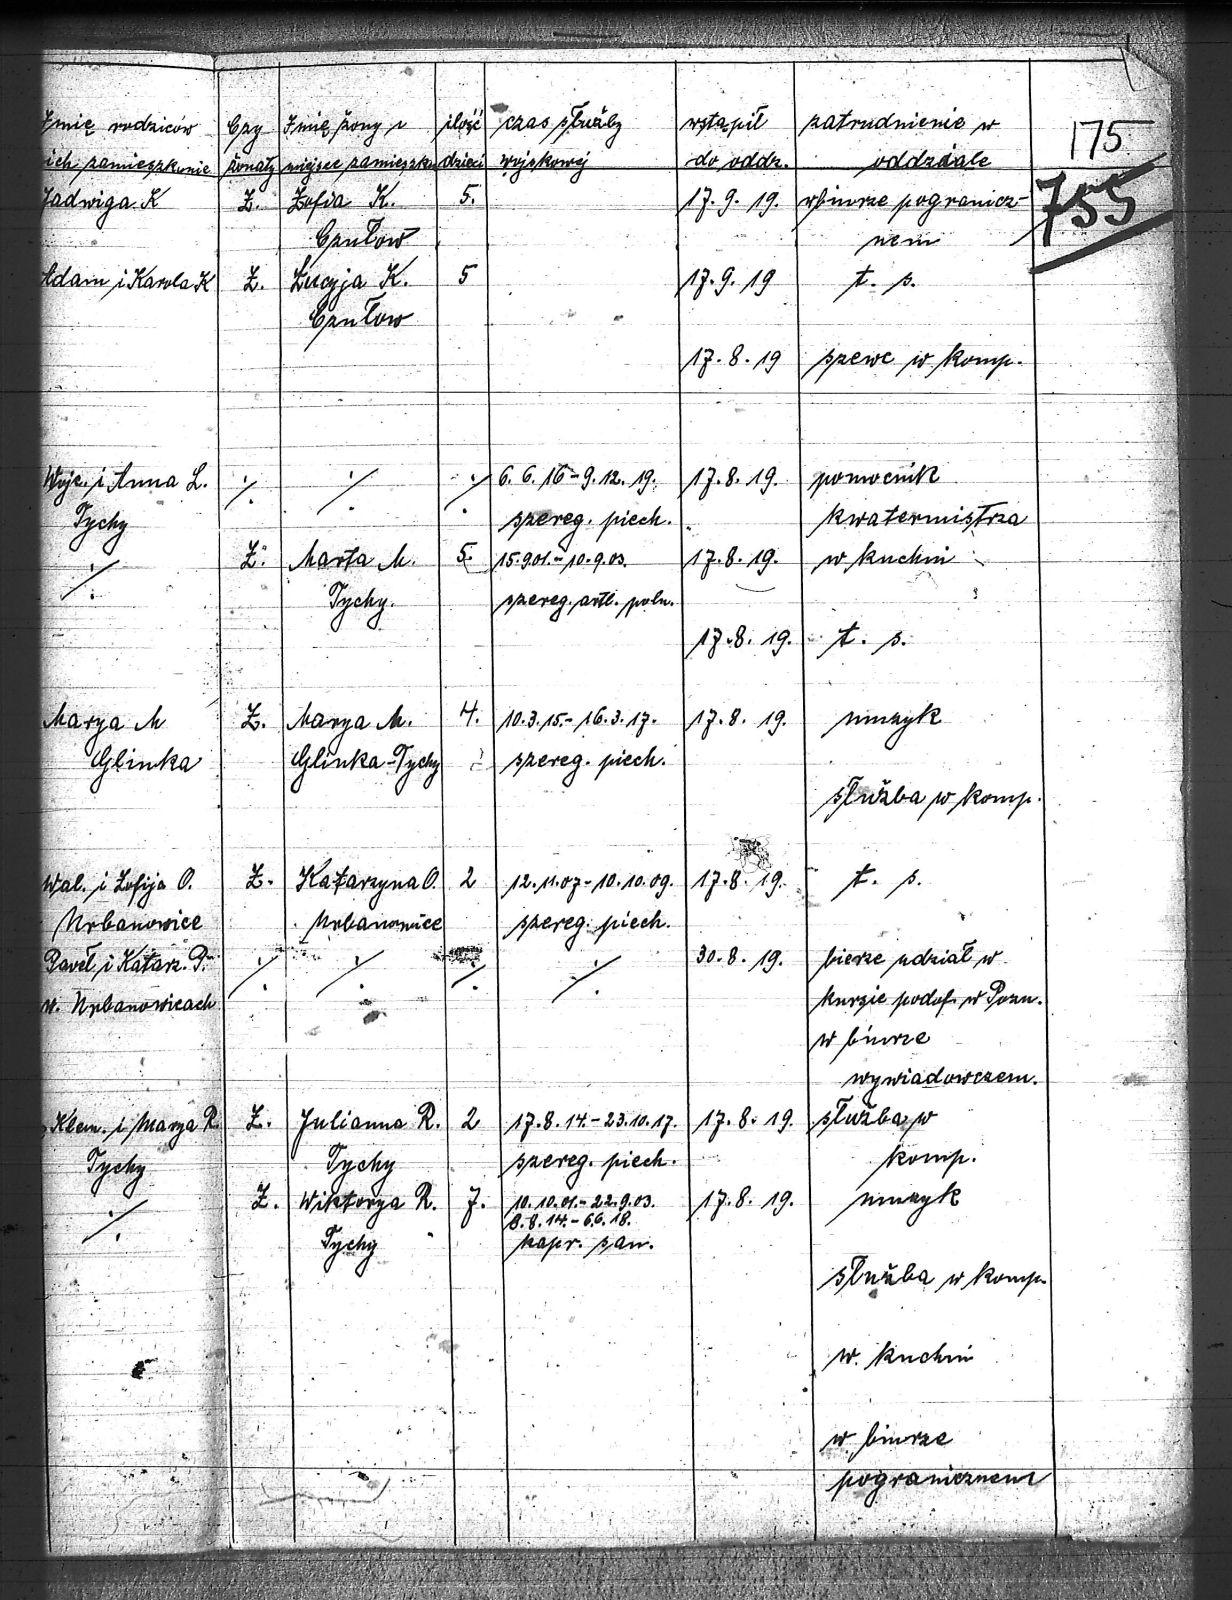 Imię rodziców Czy Imię żony i ilość czas służby wstąpił zatrudnienie w 175
ich zamieszkanie żonaty miejsce zamieszk. dzieci wojskowej do oddz. oddziale
Jadwiga K Ż. Zofia K. 5. 17. 9. 19. w biurze pogranicz- 755
Czułow nem
Adam i Karola K Ż. Łucyja K. 5 17. 9. 19 t. s.
Czułow
17. 8. 19 szewc w komp.
Wojc. i Anna L. ·/. ·/. ·/. 6. 6. 16 - 9. 12. 19. 17. 8. 19. pomocnik
Tychy szereg. piech. kwatermistrza
·/. Ż. Marta M. 5. 15.9.01. - 10.9.03. 17. 8. 19. w kuchni
Tychy. szereg. artl. poln.
17. 8. 19. t. s.
Marya M Ż. Marya M. 4. 10. 3. 15. - 16. 3. 17. 17. 8. 19. muzyk
Glinka Glinka-Tychy szereg. piech.
służba w komp.
Wal. i Zofija O. Ż. Katarzyna O. 2 12. 11. 07 - 10. 10. 09. 17. 8. 19. t. s.
Urbanowice Urbanowice szereg. piech.
Paweł i Katarz. P. ·/. ·/. ·/. ·/. 30. 8. 19. bierze udział w
w. Urbanowicach kursie podof. w Pozn.
w biurze
wywiadowczem.
Klem. i Marya R. Ż. Julianna R. 2 17. 8. 14. - 23. 10. 17. 17. 8. 19. służba w
Tychy Tychy szereg. piech. komp.
·/. Ż. Wiktorya R. 7. 10. 10. 01. - 22. 9. 03. 17. 8. 19. muzyk
8. 8. 14. - 6.6. 18.
Tychy kapr. san.
służba w komp.
w. kuchni
w biurze
pogranicznem